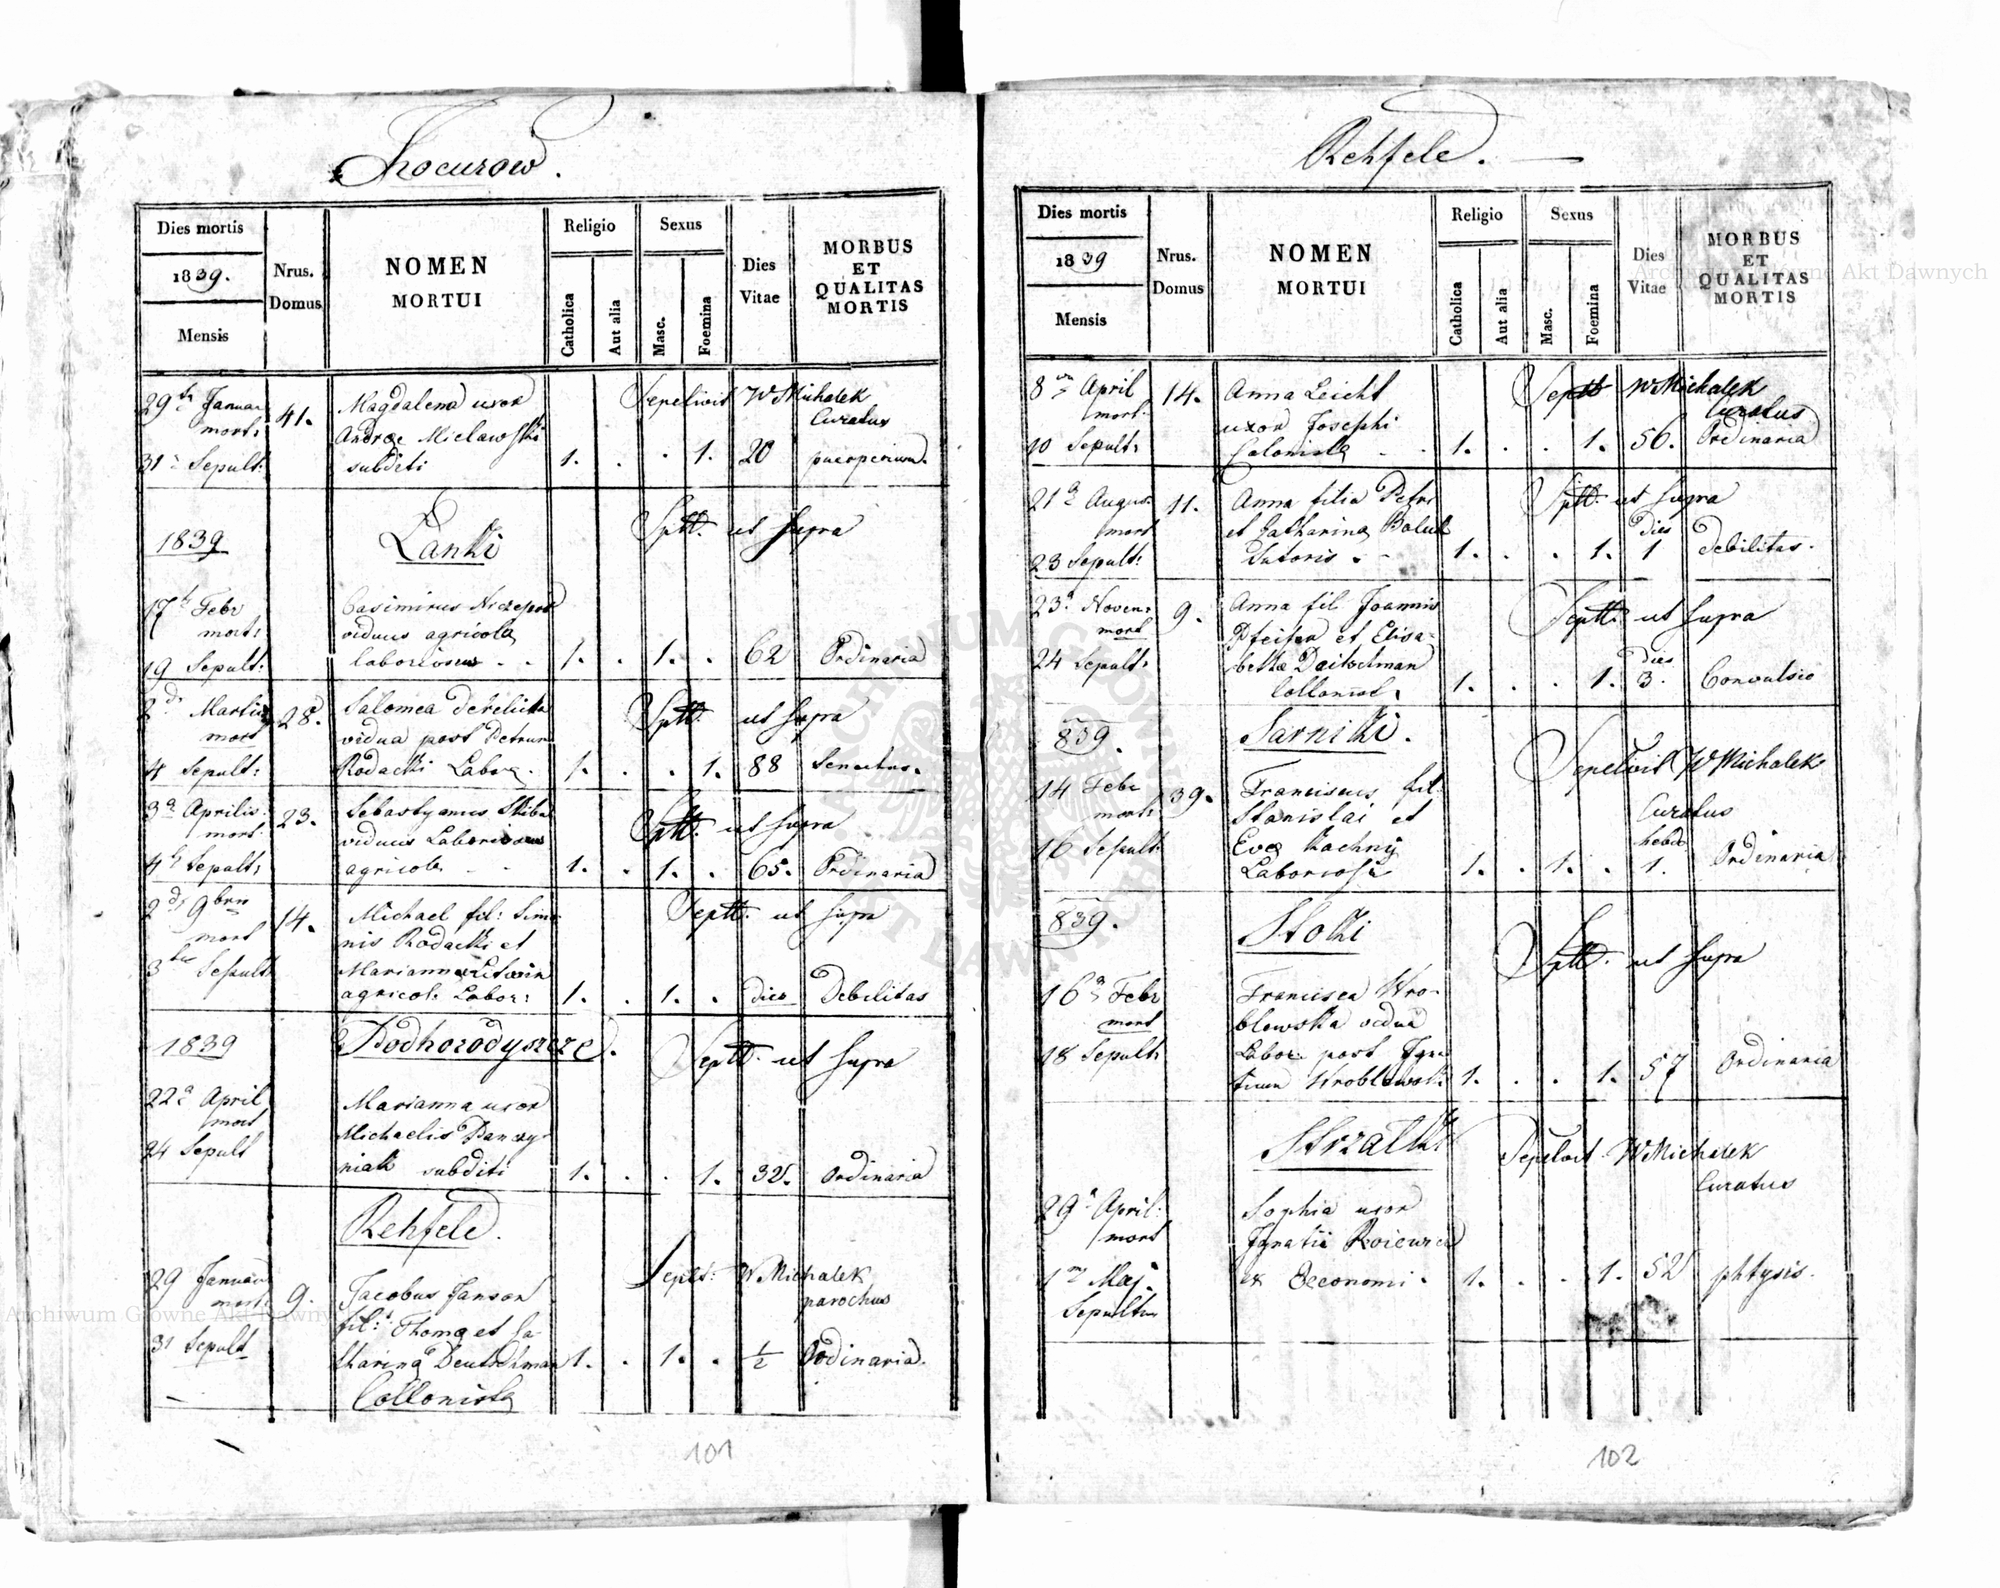 Chocurow.
Dies mortis
1839.
Mensis
Nrus.
Domus
NOMEN
MORTUI
Religio
Catholica
Aut alia
Sexus
Masc.
Foemina
Dies
Vitae
MORBUS
ET
QUALITAS
MORTIS
29 Januar
mort:
31 Sepult:
41.
Magdalena uxor
Andreæ
subditi
1. . . 1. 20 puerperium.
Sepelivit W Michalek
Curatus
1839
Lanki
Septt. ut supra
17 Febr
mort:
19 Sepult:
Casimirus
viduus agricola
laboriosus
1. . 1. . 62 Ordinaria
2 Martii
mort
4 Sepult:
28.
Salomea derelicta
vidua post Petrum
Rodacki Labor
Septt. ut supra
1. . . 1. 88 Senectus.
3 Aprilis
mort
4 Sepult:
23.
Sebastyanus Skiba
viduus Laboriosus
agricola
Septt. ut supra
1. . 1. . 65. Ordinaria
2 9bris
mort
3 Sepult
14.
Michael fil: Simo
nis Rodacki et
Marianna
agricol: Labor:
Septt. ut supra
1. . 1. . dies Debilitas
1839
Podhorodyszcze.
Septt. ut supra
22 April
mort
24 Sepult
Marianna uxor
Michaelis Danczy
niak subditi
1. . . 1. 32. Ordinaria
Rehfeld.
29 Januar
mort:
31 Sepult
9.
Jacobus Janson
fil: Thomæ et Ca
tharinæ Deutschman
Collonistæ
Septt: W Michalek
parochus
1. . 1. . 1/2 Ordinaria.
101
Rehfeld.
Dies mortis
1839
Mensis
Nrus.
Domus
NOMEN
MORTUI
Religio
Catholica
Aut alia
Sexus
Masc.
Foemina
Dies
Vitae
MORBUS
ET
QUALITAS
MORTIS
8 April
mort.
10 Sepult:
14.
Anna Leicht
uxor Josephi
Colonistæ
Septt W Michalek
Curatus
1. . . 1. 56. Ordinaria
21 Augus
mort
23 Sepult:
11.
Anna filia Petri
et Catharinæ
Sutoris
Septt. ut supra
dies
1. . . 1. 1 debilitas.
23 Novem:
mort
24 Sepult:
9.
Anna fil Joannis
Pfeifer et Elisa-
bethæ Daitschman
Collonist.
Septt. ut supra
dies
1. . . 1. 3. Convulsio
839.
Sarniki.
Sepelivit W Michalek
Curatus
14 Febr
mort:
16 Sepult:
39.
Franciscus fil:
Stanislai et
Evæ Kachnij
Laboriosi
hebd
1. . 1. . 1. Ordinaria
839.
Stoki
Septt. ut supra
16 Febr
mort
18 Sepult:
Francisca Wro-
blowska vidua
Labor: post Igna
tium Wroblowski
1. . . 1. 57 Ordinaria
Strzalki
Sepelivit W Michalek
Curatus
29 April.
mort
1 Maj.
Sepultus
Sophia uxor
Ignatii
ex Oeconomi.
1. . . 1. 52 phtysis.
102
Archiwum Główne Akt Dawnych
Archiwum Główne Akt Dawnych
ARCHIWUM GŁÓWNE AKT DAWNYCH